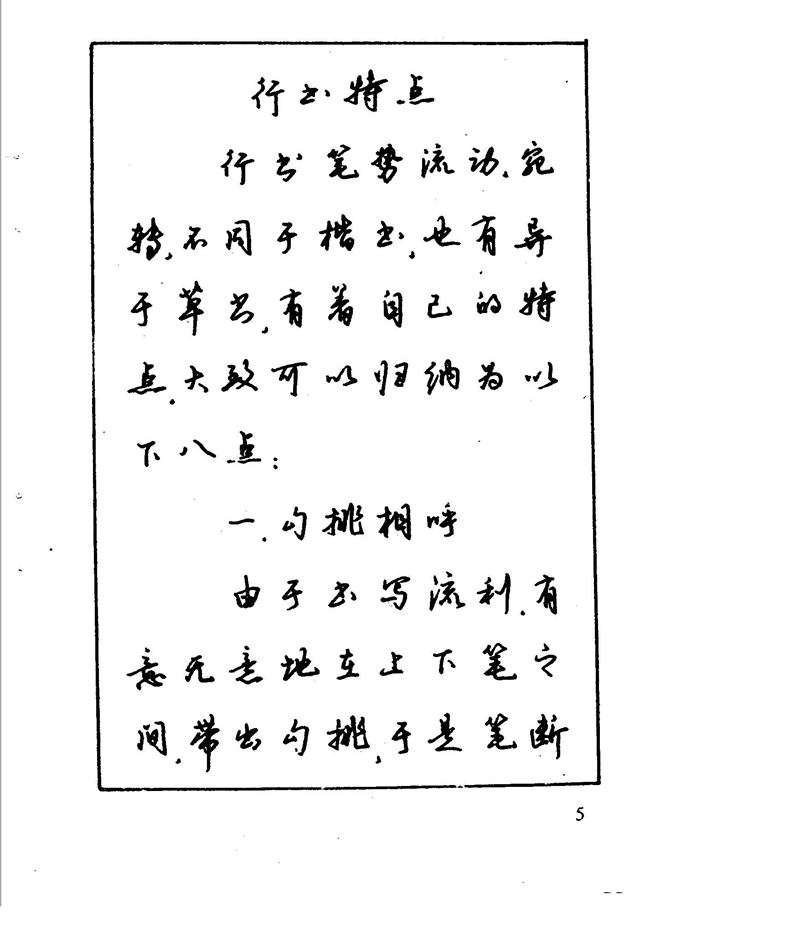 行书特点
行书笔势流动、宛
转,不同于楷书,也有异
于草书,有着自己的特
点.大致可以归纳为以
下八点:
一.勾挑相呼
由于书写流利.有
意无意地在上下笔之
间,带出勾挑,于是笔断
5